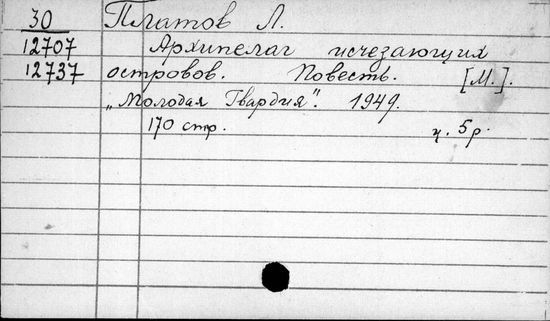 30 Платов Л.
12707 Архипелаг исчезающих
12737 островов. Повесть. [М.].
„Молодая Гвардия". 1949.
170 стр. ц. 5р.